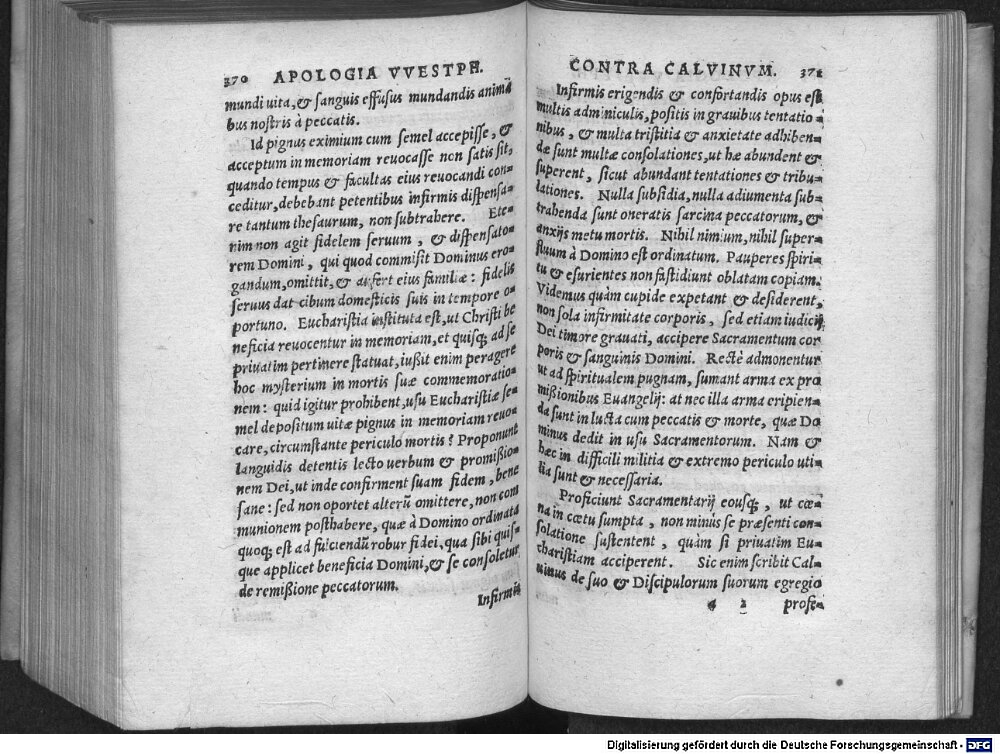 370 APOLOGIA VVESTPH.
mundi uita, & sanguis effusus mundandis anima
bus nostris à peccatis.
Id pignus eximium cum semel accepisse, &
acceptum in memoriam reuocasse non satis sit,
quando tempus & facultas eius reuocandi con-
ceditur, debebant petentibus infirmis dispensa-
re tantum thesaurum, non subtrahere. Ete-
nim non agit fidelem seruum, & dispensato-
rem Domini, qui quod commisit Dominus ero-
gandum, omittit, & aufert eius familiæ: fidelis
seruus dat cibum domesticis suis in tempore o-
portuno. Eucharistia instituta est, ut Christi be
neficia reuocentur in memoriam, et quisq; ad se
priuatim pertinere statuat, iußit enim peragere
hoc mysterium in mortis suæ commemoratio-
nem: quid igitur prohibent, usu Eucharistiæ se-
mel depositum uitæ pignus in memoriam reuo-
care, circumstante periculo mortis? Proponunt
languidis detentis lecto uerbum & promißio-
nem Dei, ut inde confirment suam fidem, bene
sane: sed non oportet alterũ omittere, non com
munionem posthabere, quæ à Domino ordinata
quoq; est ad fulciendũ robur fidei, qua sibi quis-
que applicet beneficia Domini, & se consoletur
de remißione peccatorum.
Infirmis
CONTRA CALVINVM. 371
Infirmis erigendis & confortandis opus est
multis adminiculis, positis in grauibus tentatio-
nibus, & multa tristitia & anxietate adhiben-
dæ sunt multæ consolationes, ut hæ abundent &
superent, sicut abundant tentationes & tribu-
lationes. Nulla subsidia, nulla adiumenta sub-
trahenda sunt oneratis sarcina peccatorum, &
anxijs metu mortis. Nihil nimium, nihil super-
fluum à Domino est ordinatum. Pauperes spiri-
tu & esurientes non fastidiunt oblatam copiam.
Videmus quàm cupide expetant & desiderent,
non sola infirmitate corporis, sed etiam iudicij
Dei timore grauati, accipere Sacramentum cor
poris & sanguinis Domini. Rectè admonentur
ut ad spiritualem pugnam, sumant arma ex pro
mißionibus Euangelij: at nec illa arma eripien-
da sunt in lucta cum peccatis & morte, quæ Do
minus dedit in usu Sacramentorum. Nam &
hæc in difficili militia & extremo periculo uti-
lia sunt & necessaria.
Proficiunt Sacramentarij eousq;, ut cœ-
na in cœtu sumpta, non minus se præsenti con-
solatione sustentent, quàm si priuatim Eu-
charistiam acciperent. Sic enim scribit Cal-
uinus de suo & Discipulorum suorum egregio
2 profe-
Digitalisierung gefördert durch die Deutsche Forschungsgemeinschaft - DFG